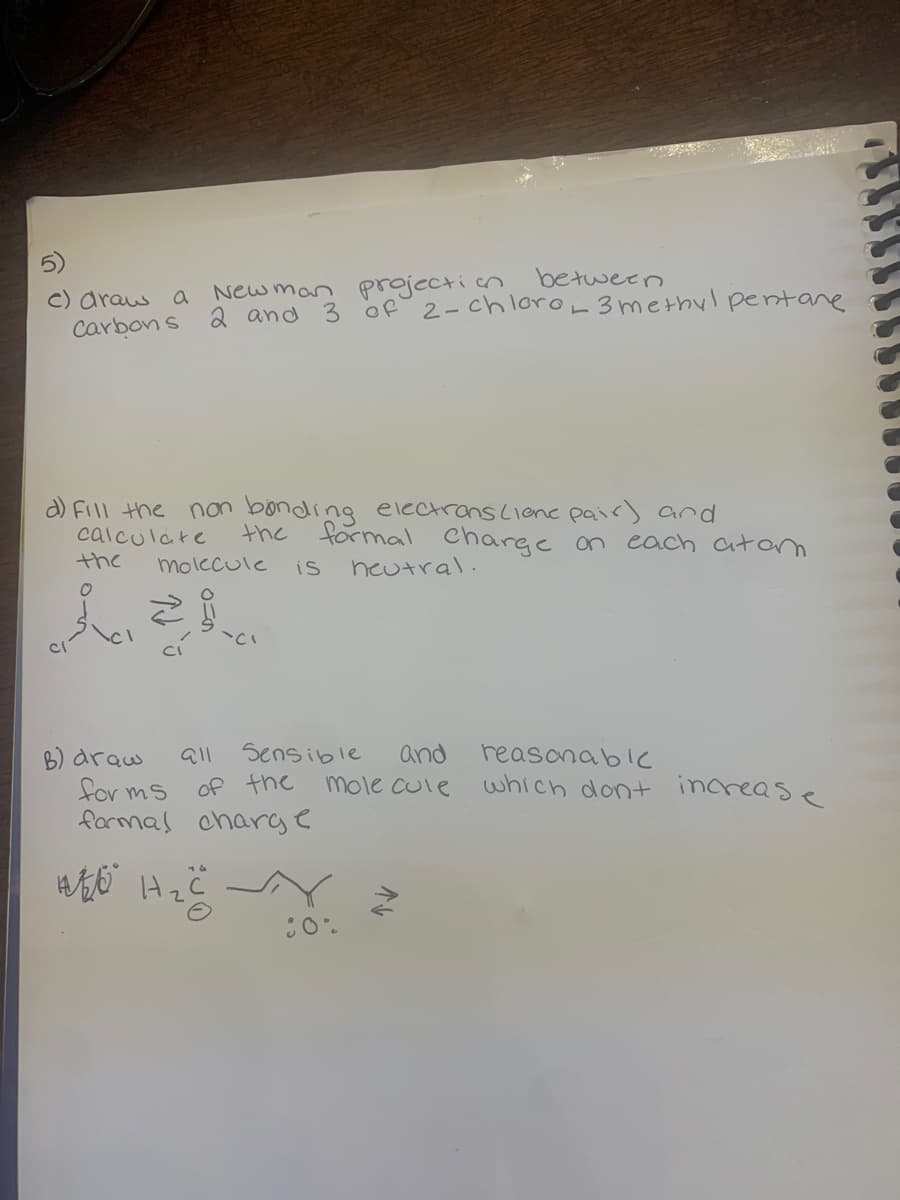 5)
c) draw a Newman projection between
carbons 2 and 3 of 2-chloro-3methylpentane
d) Fill the non bonding electrons (lone pair) and
calculate the formal charge on each atom
the molecule is neutral.
O O
S ⇌ S
Cl Cl Cl Cl
B) draw all sensible and reasonable
forms of the molecule which dont increase
formal charge
H₂C̈ ⇌
⊖
:O: